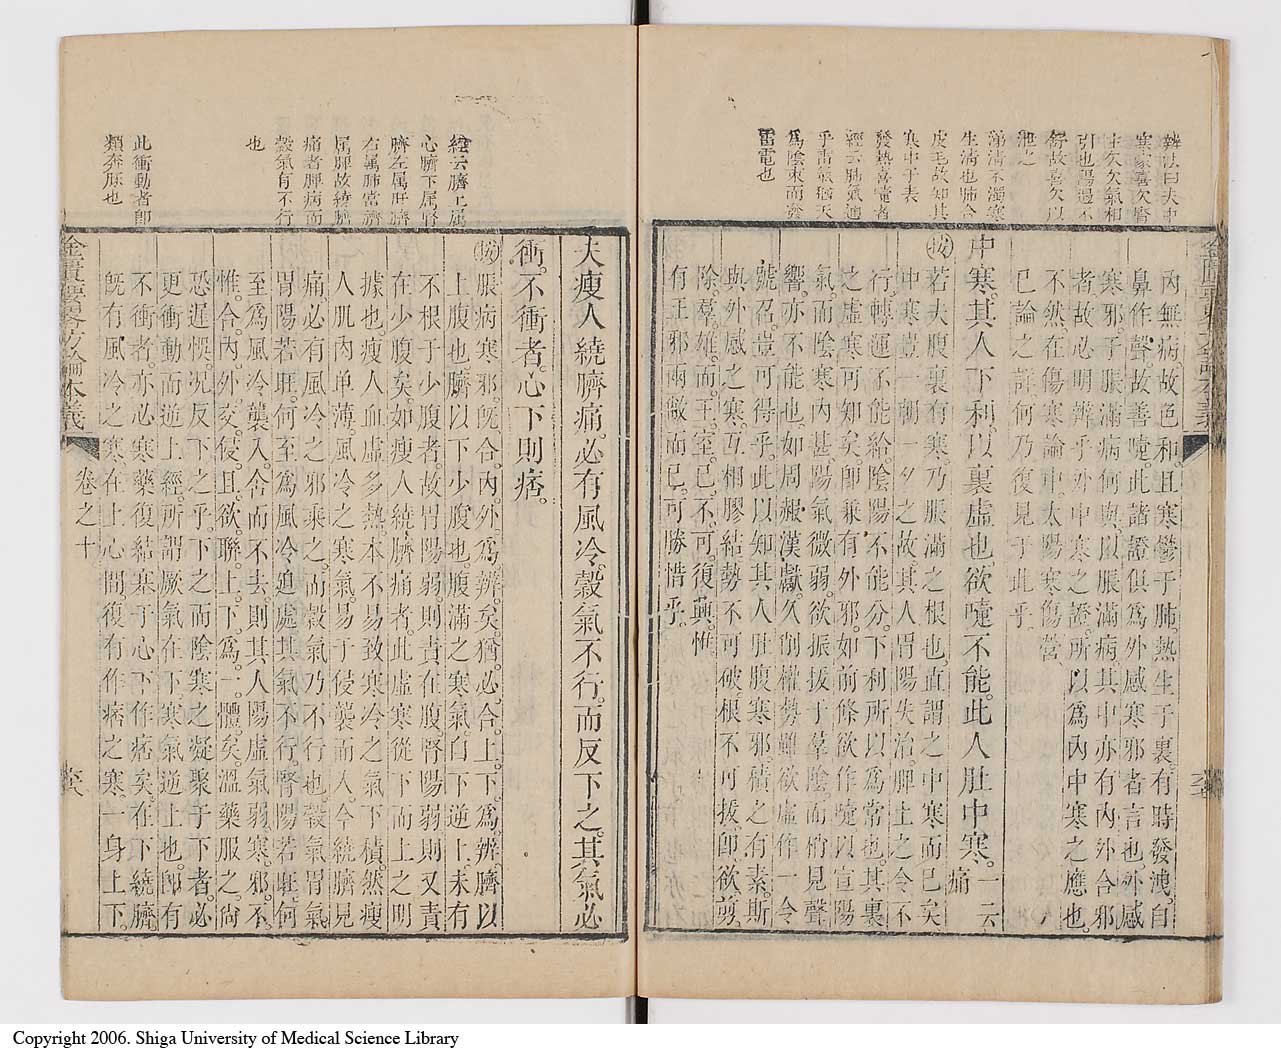 辨法曰夫中
寒家喜欠
生欠欠氣相
引也陽過不
舒故喜欠以
泄之
涕清不濁寒
生清也肺合
皮毛故知其
寒中于表
發熱善嚏者
經云肺氣通
乎雷氣猶天
爲陰束而發
雷電也
內無病。故色和。且寒鬱于肺。熱生于裏。有時發洩。自
鼻作聲。故善嚏。此諸證俱爲外感寒邪者言也。外感
寒邪于脹滿病何與。以脹滿病。其中亦有內外合邪
者。故必明辨乎外中寒之證。所以爲內中寒之應也。
不然。在傷寒論中。太陽寒傷營。八
已論之詳。何乃復見于此乎。
中寒。其人下利。以裏虛也。欲嚏不能。此人肚中寒。一云痛
㊟若夫腹裏有寒。乃脹滿之根也。直謂之中寒而已矣。
中寒豈一朝一夕之故。其人胃陽失治。脾土之令不
行。轉運不能給。陰陽不能分。下利所以爲常也。其裏
之虛寒可知矣。卽兼有外邪。如前條欲作嚏以宣陽
氣。而陰寒內甚。陽氣微弱。欲振拔于羣陰而稍見聲
響。亦不能也。如周赧漢獻。久削權勢。雖欲虛作一令
號召。豈可得乎。此以知其人肚腹寒邪。積之有素。斯
與外感之寒。互相膠結。勢不可破。根不可拔。卽欲剪
除羣雄。而王室已不可復興。惟
有王邪兩敝而已。可勝惜乎。
金匱要畧方論本義
經云臍上屬
心臍下屬腎
臍左屬肝臍
右屬肺當臍
屬脾故繞臍
痛者脾病而
穀氣有不行
也
此衝動者卽
類奔豚也
夫瘦人繞臍痛。必有風冷。穀氣不行。而反下之。其氣必
衝。不衝者。心下則痞。
㊟脹病寒邪。旣合內外爲辨矣。猶必合上下爲辨。臍以
上腹也。臍以下少腹也。腹滿之寒氣。自下逆上。未有
不根于少腹者。故胃陽弱則責在腹。腎陽弱則又責
在少腹矣。如瘦人繞臍痛者。此虛寒從下而上之明
據也。瘦人血虛多熱。本不易致寒冷之氣下積。然瘦
人肌肉单薄。風冷之寒氣。易于侵襲而入。今繞臍見
痛。必有風冷之邪乘之。而穀氣乃不行也。穀氣胃氣
胃陽若旺。何至爲風冷迫處。其氣不行。腎陽若旺。何
至爲風冷襲入。舍而不去。則其人陽虛氣弱。寒邪不
惟合內外交侵耳。欲聯上下爲一體矣。溫藥服之。尙
恐遲悞。况反下之乎。下之而陰寒之凝聚于下者。必
更衝動而逆上。經所謂厥氣在下。寒氣逆上也。卽有
不衝者。亦必寒藥復結寒于心下作痞矣。在下繞臍
旣有風冷之寒。在上心間復有作痞之寒。一身上下。
金匱要畧方論本義
卷之十